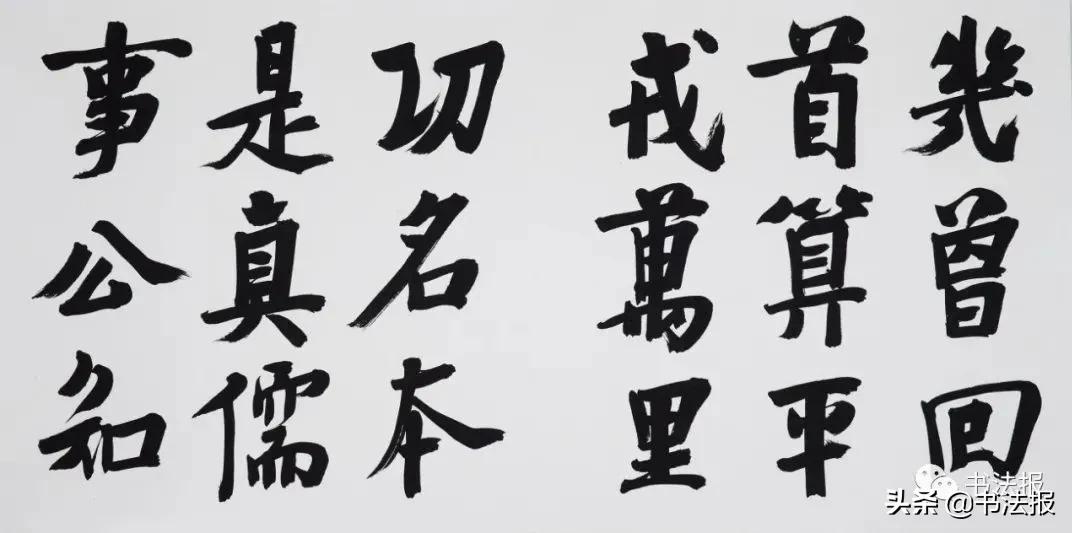 幾曾回
首算平
戎萬里
功名本
是真儒
事公知
书法报
头条 @书法报